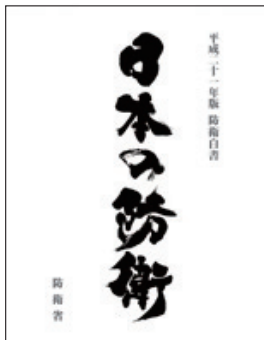 平成二十一年版 防衛白書
日本の防衛
防衛省